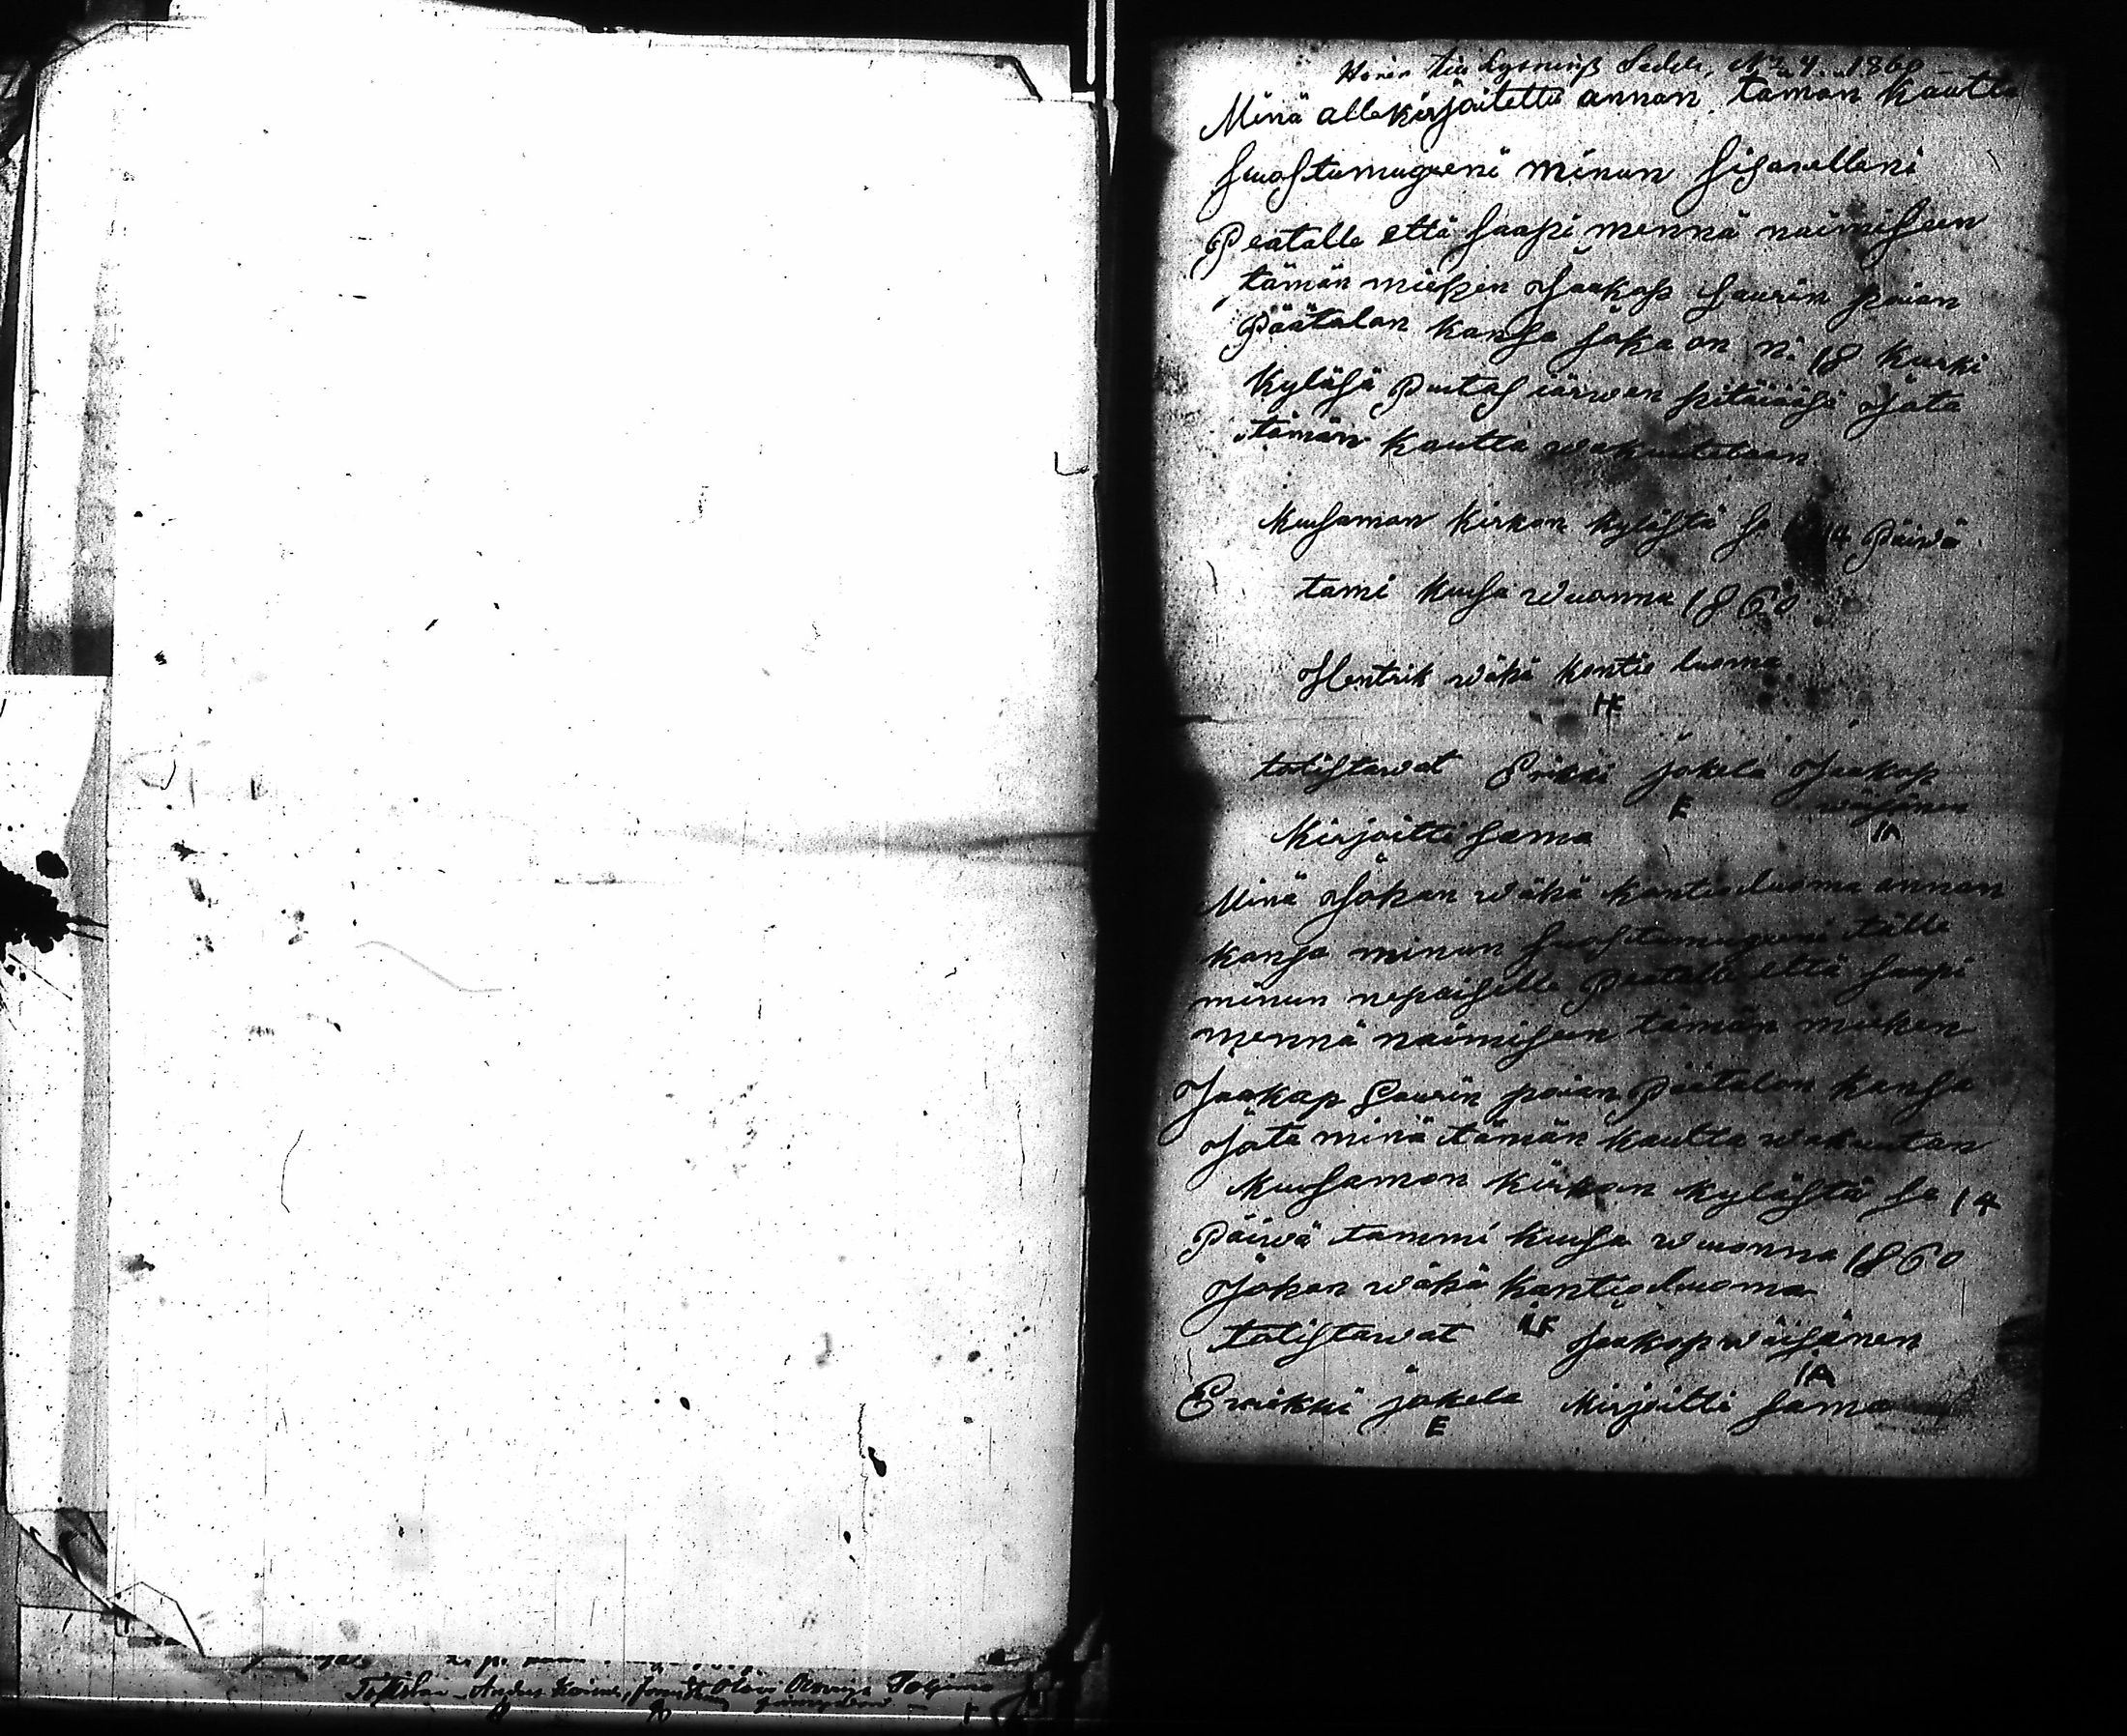 Hörer till Lysnings Sedel, N:o 4. 1860
Minä allekirjoitettu annan tämän kautta
suostumugxeni minun sisarelleni
Peatalle että saapi mennä naimiseen
tämän miehen Jaakop Laurin poian
Päätalon kansa joka on n: 18 kurki
kyläsä Puutas järwen pitäiäsä Jota
tämän kautta wakuutetaan
kuusamon kirkon kylästä se 14 päiwä
tami kuusa wuonna 1860
Hentrik wähä kontio luoma
HE
totistawat Erikki jokela Jaakop
wäisänen
E IA
kirjoitti sama
Minä Johan wähä kontioluoma annan
kansa minun suostumugxeni tälle
minun nepaiselle Peatalle että saapi
mennä naimiseen tämän miehen
Jaakop Laurin poian Päätalon kansa
Jota minä tämän kautta wakuutan
kuusamon kirkon kylästä se 14
päiwä tammi kuusa wuonna 1860
Johan wähä kontioluoma
totistawat Jaakop wäisänen
IA
Eraikki jokela kirjoitti sama
E